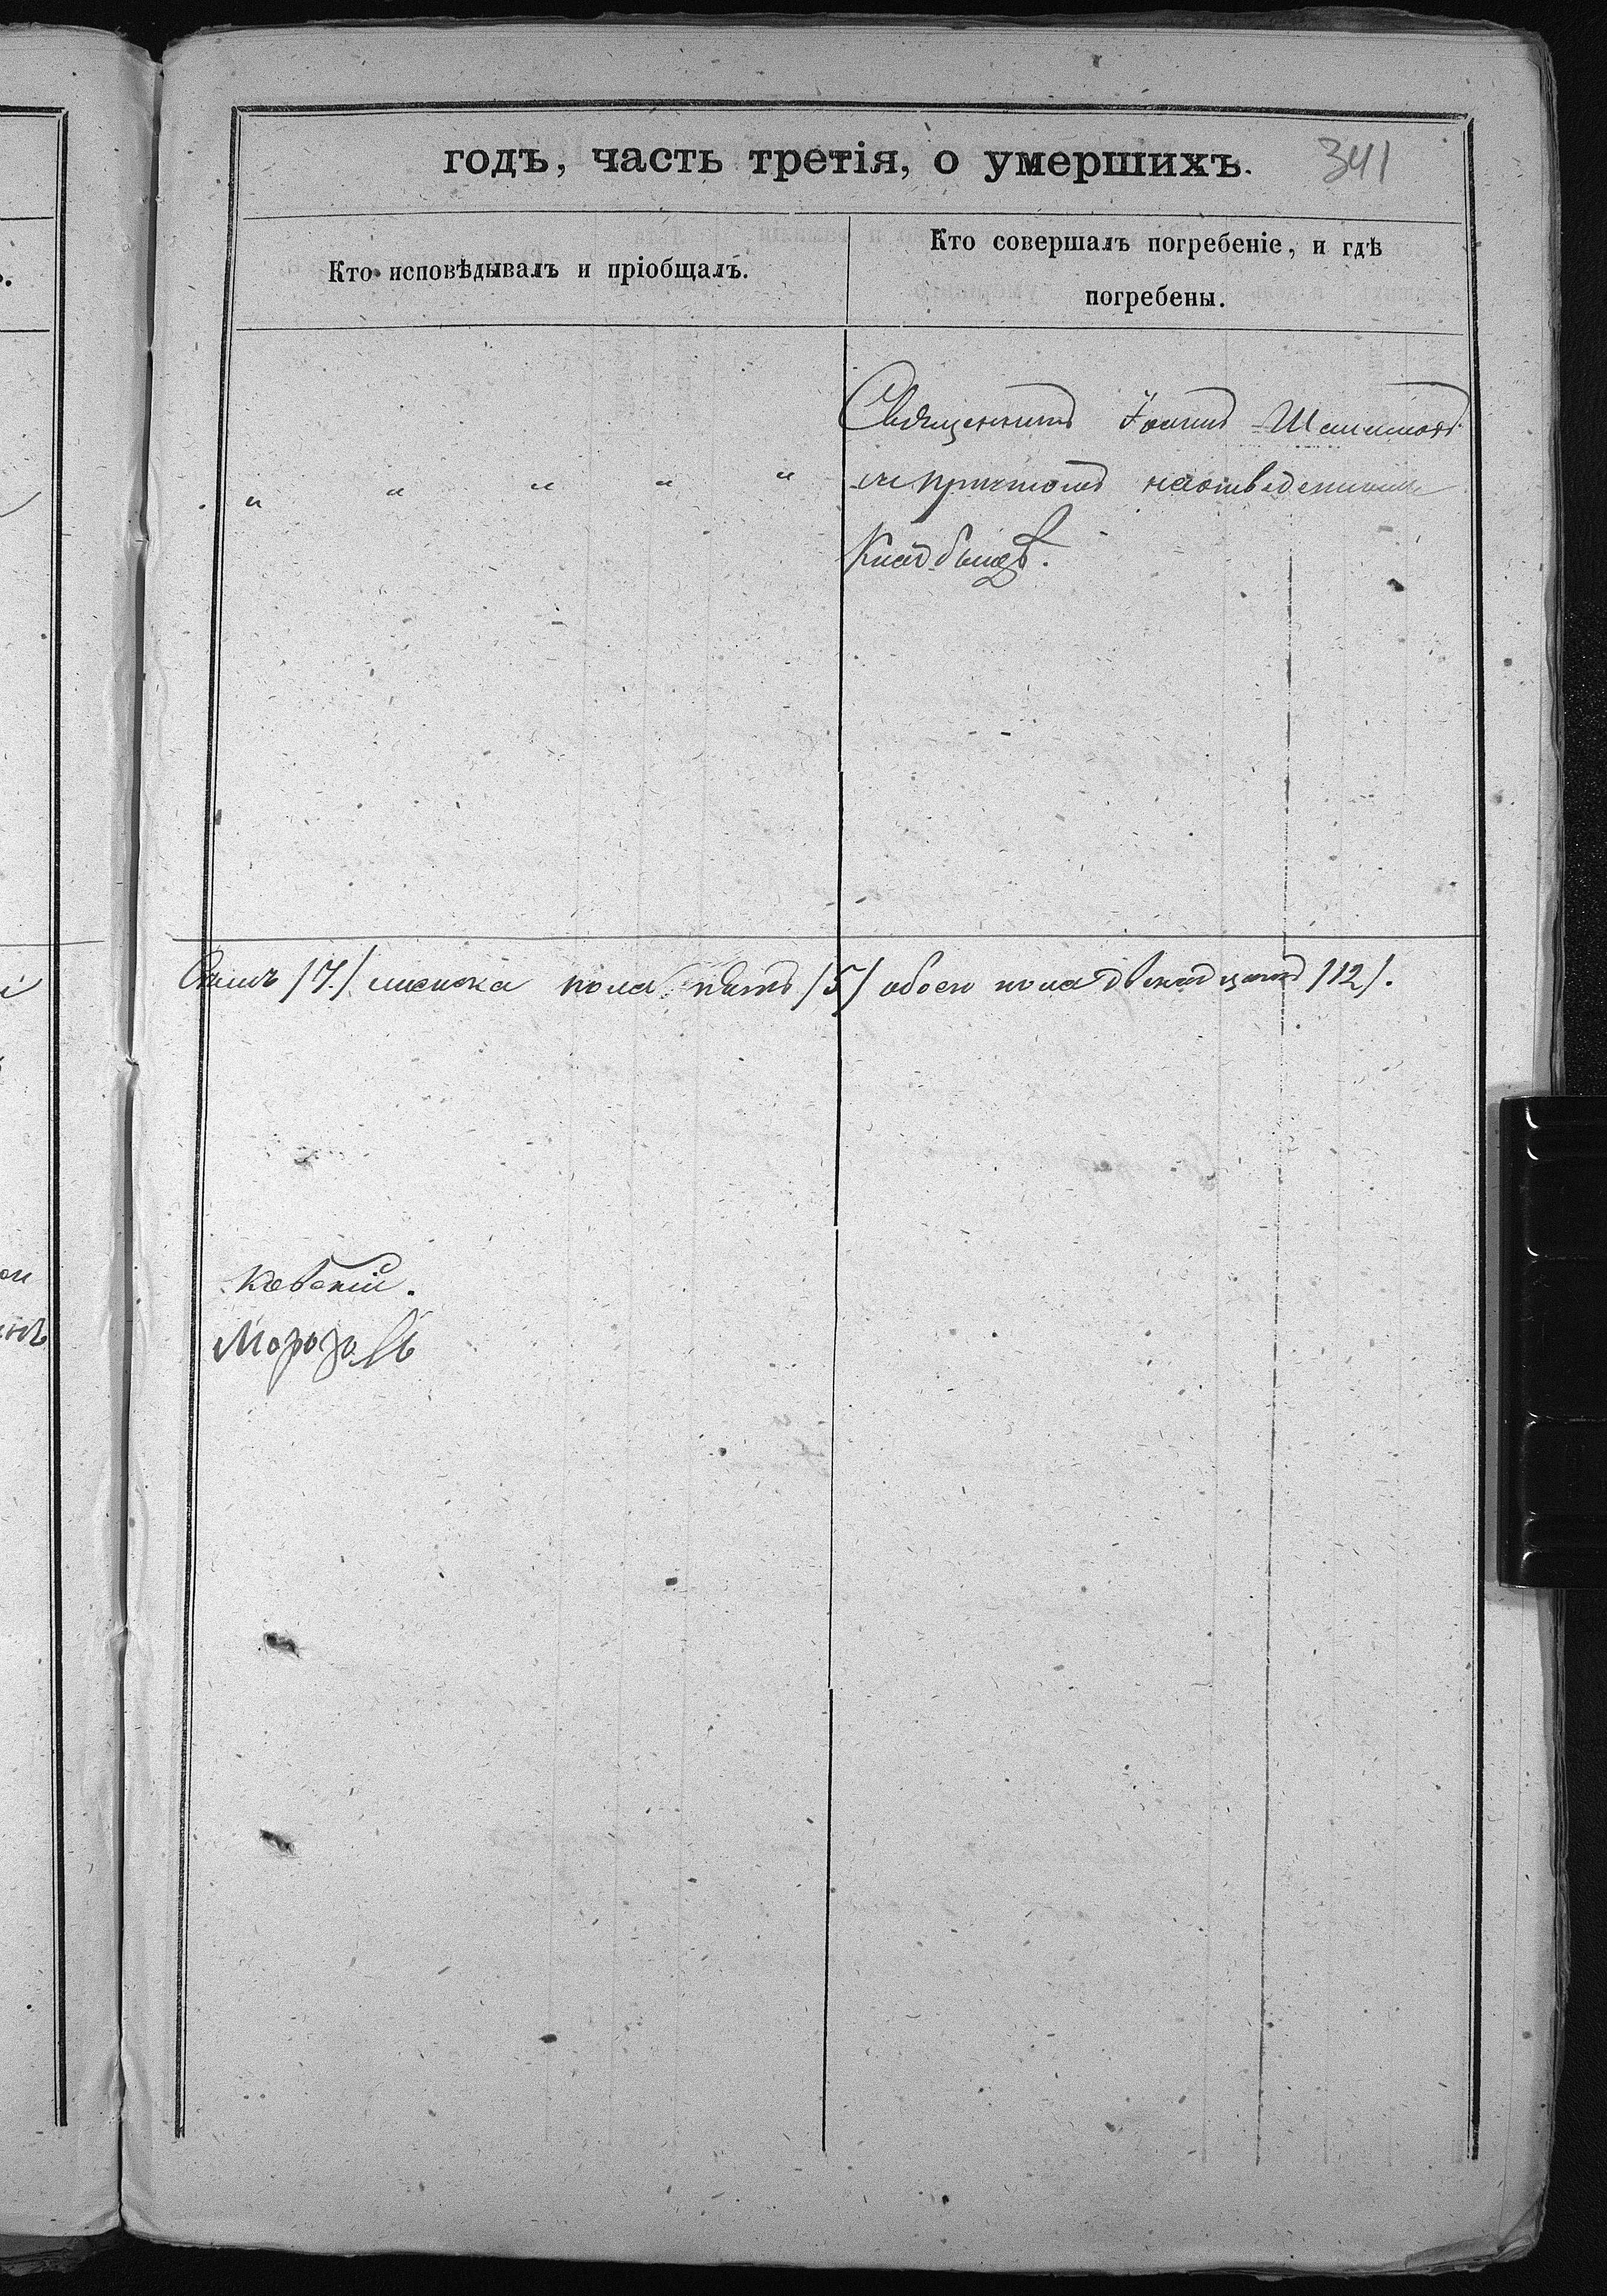 годъ, часть третія, о умершихъ. 341
Кто исповѣдывалъ и пріобщалъ.
Кто совершалъ погребеніе, и гдѣ
погребены.
Священникъ Іоаннъ
" " " " " съ причтомъ на отведенномъ
кладбищѣ.
Семь /7/ женска пола пять /5/ обоего пола двенадцать /12/.
Морозовъ